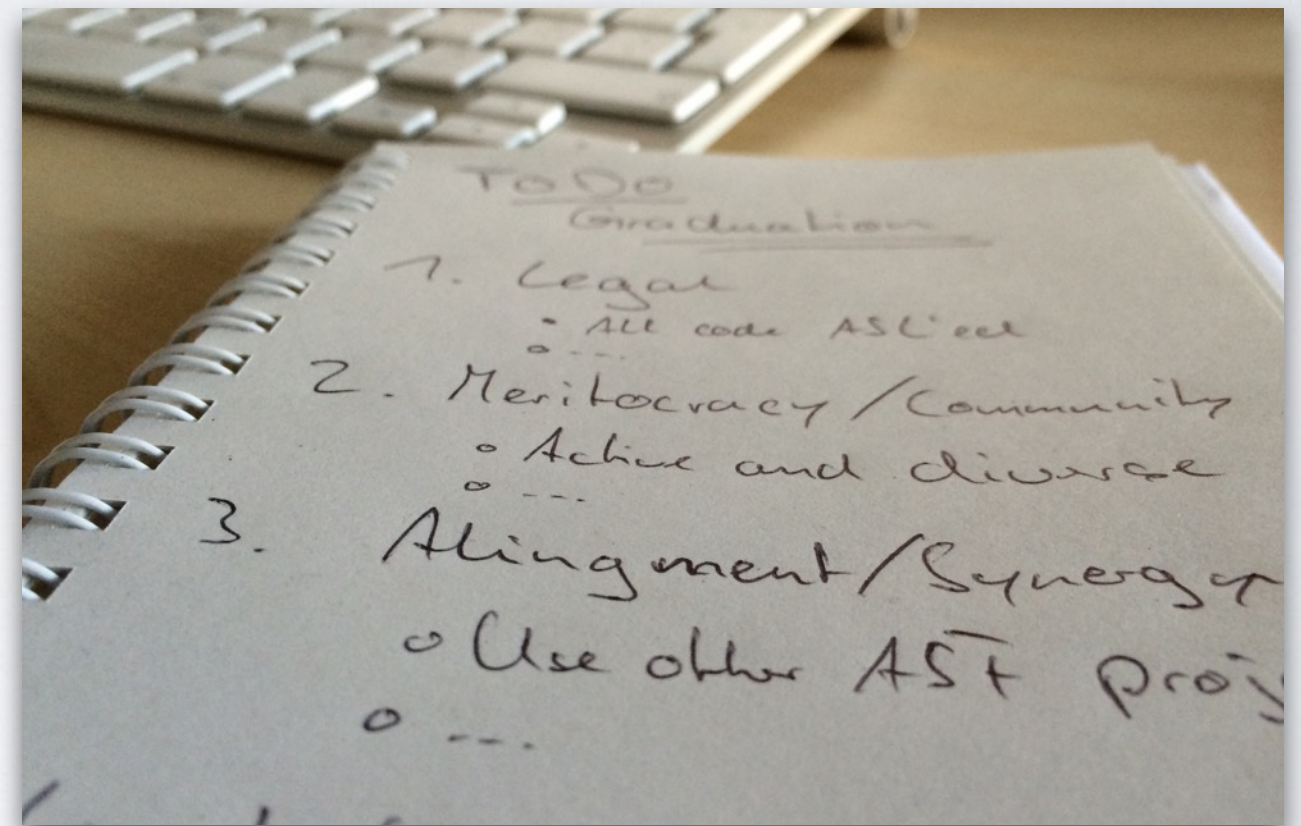 ToDo
Graduation
1. Legal
• All code ASL'ed
o ...
2. Meritocracy / Community
o Active and diverse
o ---
3. Alingment / Synergy
o Use other ASF proj
o ---